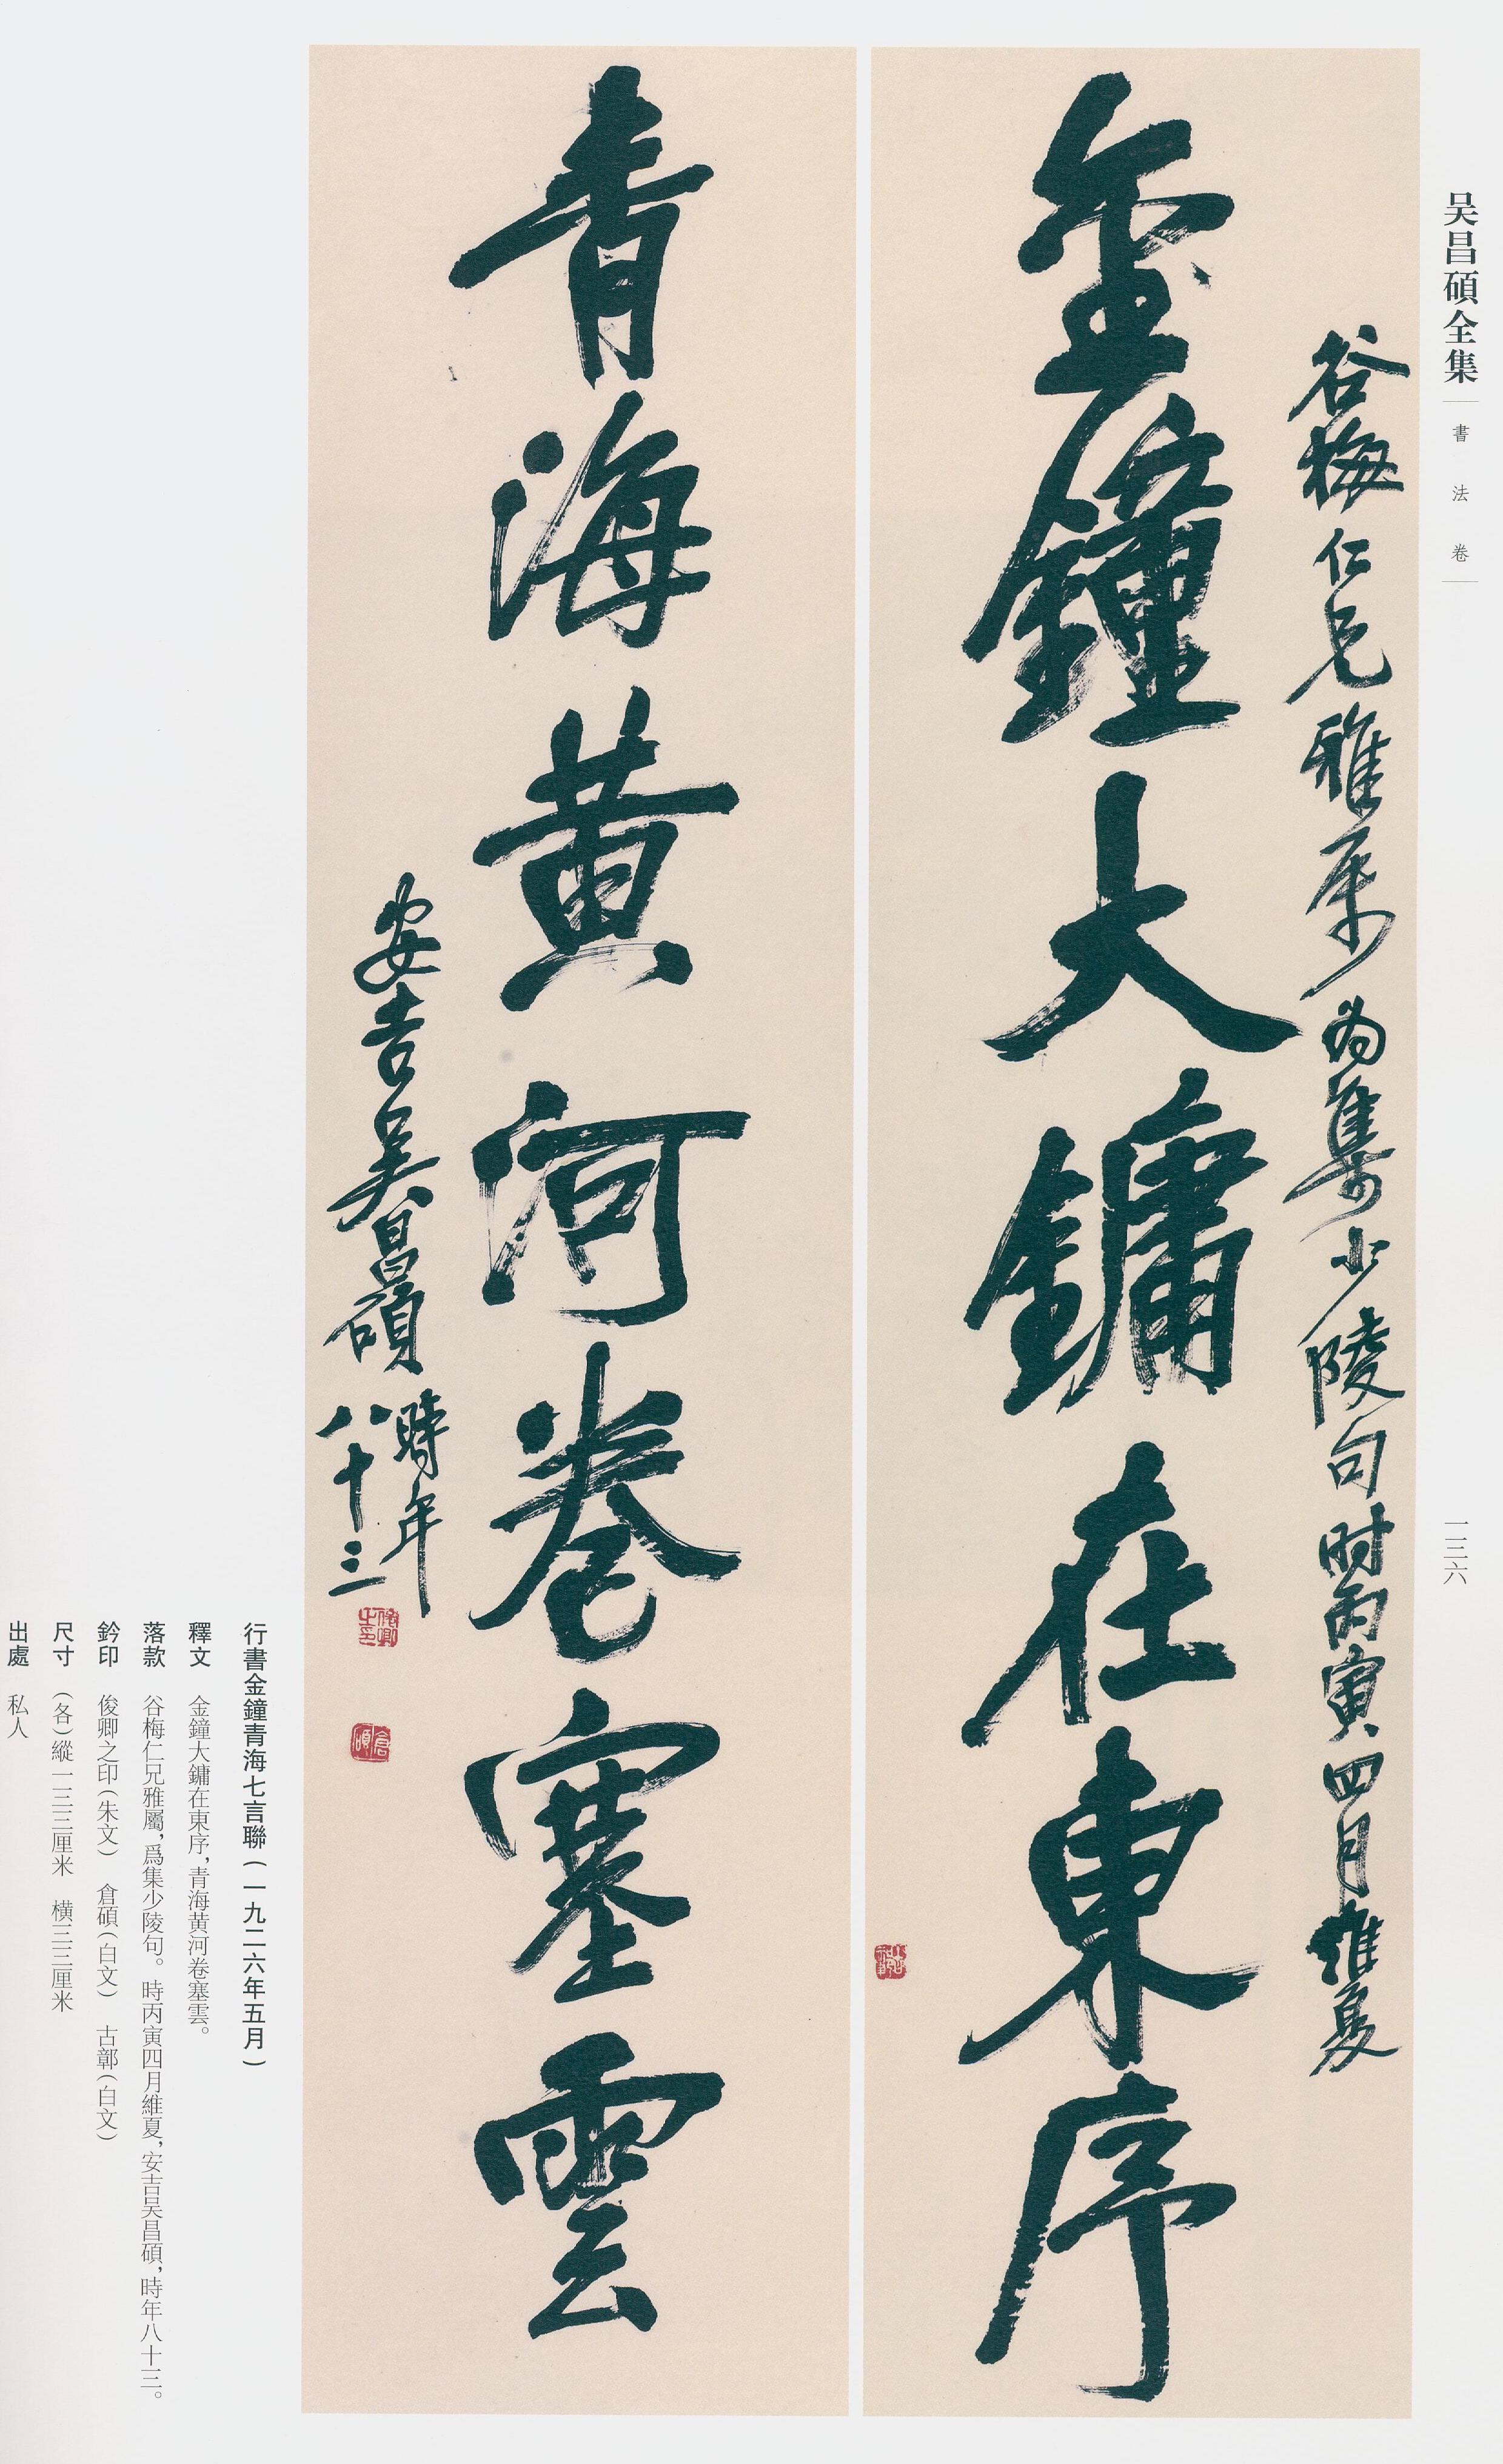 吴昌碩全集
書法卷
一三六
谷梅仁兄雅屬為集少陵句時丙寅四月維夏
金鐘大鏞在東序
古鄣
青海黄河卷塞雲
安吉吴昌碩
時年
八十三
俊卿之印
倉碩
行書金鐘青海七言聯（一九二六年五月）
釋文　金鐘大鏞在東序，青海黄河卷塞雲。
落款　谷梅仁兄雅屬，爲集少陵句。時丙寅四月維夏，安吉吴昌碩，時年八十三。
鈐印　俊卿之印（朱文）　倉碩（白文）　古鄣（白文）
尺寸　（各）縱一三三厘米　横三三厘米
出處　私人